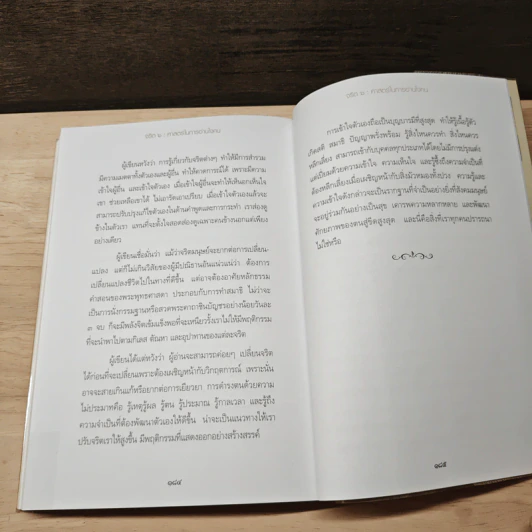 จริต ๖ : ศาสตร์ในการอ่านใจคน
ผู้เขียนหวังว่า การรู้เกี่ยวกับจริตต่างๆ ทำให้มีการสำรวม
มีความเมตตาทั้งตัวเองและผู้อื่น ทำให้คาดการณ์ได้ เพราะมีความ
เข้าใจผู้อื่น และเข้าใจตัวเอง เมื่อเข้าใจผู้อื่นจะทำให้เห็นอกเห็นใจ
เขา ช่วยเหลือเขาได้ ไม่เอารัดเอาเปรียบ เมื่อเข้าใจตัวเองแล้วจะ
สามารถปรับปรุงแก้ไขตัวเองในด้านคำพูดและการกระทำ เราส่องดู
ข้างในตัวเรา แทนที่จะตั้งใจสอดส่องดูเฉพาะคนข้างนอกแต่เพียง
อย่างเดียว
ผู้เขียนเชื่อมั่นว่า แม้ว่าจริตมนุษย์จะยากต่อการเปลี่ยน-
แปลง แต่ก็ไม่เกินวิสัยของผู้มีปณิธานอันแน่วแน่ว่า ต้องการ
เปลี่ยนแปลงชีวิตไปในทางที่ดีขึ้น แต่อาจต้องอาศัยหลักธรรม
คำสอนของพระพุทธศาสดา ประกอบกับการทำสมาธิ ไม่ว่าจะ
เป็นการนั่งกรรมฐานหรือสวดพระคาถาชินบัญชรอย่างน้อยวันละ
๓ จบ ก็จะมีพลังจิตเข้มแข็งพอที่จะเหนี่ยวรั้งเราไม่ให้มีพฤติกรรม
ที่จะนำพาไปตามกิเลส ตัณหา และอุปาทานของแต่ละจริต
ผู้เขียนได้แต่หวังว่า ผู้อ่านจะสามารถค่อยๆ เปลี่ยนจริต
ได้ก่อนที่จะเปลี่ยนเพราะต้องเผชิญหน้ากับวิกฤตการณ์ เพราะนั่น
อาจจะสายเกินแก้หรือยากต่อการเยียวยา การดำรงตนด้วยความ
ไม่ประมาทคือ รู้เหตุรู้ผล รู้ตน รู้ประมาณ รู้กาลเวลา และรู้ถึง
ความจำเป็นที่ต้องพัฒนาตัวเองให้ดีขึ้น น่าจะเป็นแนวทางให้เรา
ปรับจริตเราให้สูงขึ้น มีพฤติกรรมที่แสดงออกอย่างสร้างสรรค์
๑๘๔
จริต ๖ : ศาสตร์ในการอ่านใจคน
การเข้าใจตัวเองถือเป็นบุญบารมีที่สูงสุด ทำให้รู้เนื้อรู้ตัว
เกิดสติ สมาธิ ปัญญาพรั่งพร้อม รู้สิ่งไหนควรทำ สิ่งไหนควร
หลีกเลี่ยง สามารถเข้ากับบุคคลทุกประเภทได้โดยไม่มีการปรุงแต่ง
แต่เป็นด้วยความเข้าใจ ความเห็นใจ และรู้ซึ้งถึงความจำเป็นที่
ต้องหลีกเลี่ยงเมื่อเผชิญหน้ากับสิ่งผิวหมองทั้งปวง ความรู้และ
ความเข้าใจดังกล่าวจะเป็นรากฐานที่จำเป็นอย่างยิ่งที่สังคมมนุษย์
จะอยู่ร่วมกันอย่างเป็นสุข เคารพความหลากหลาย และพัฒนา
ศักยภาพของตนสู่ขีดสูงสุด และนี่คือสิ่งที่เราทุกคนปรารถนา
ไม่ใช่หรือ
๑๘๕